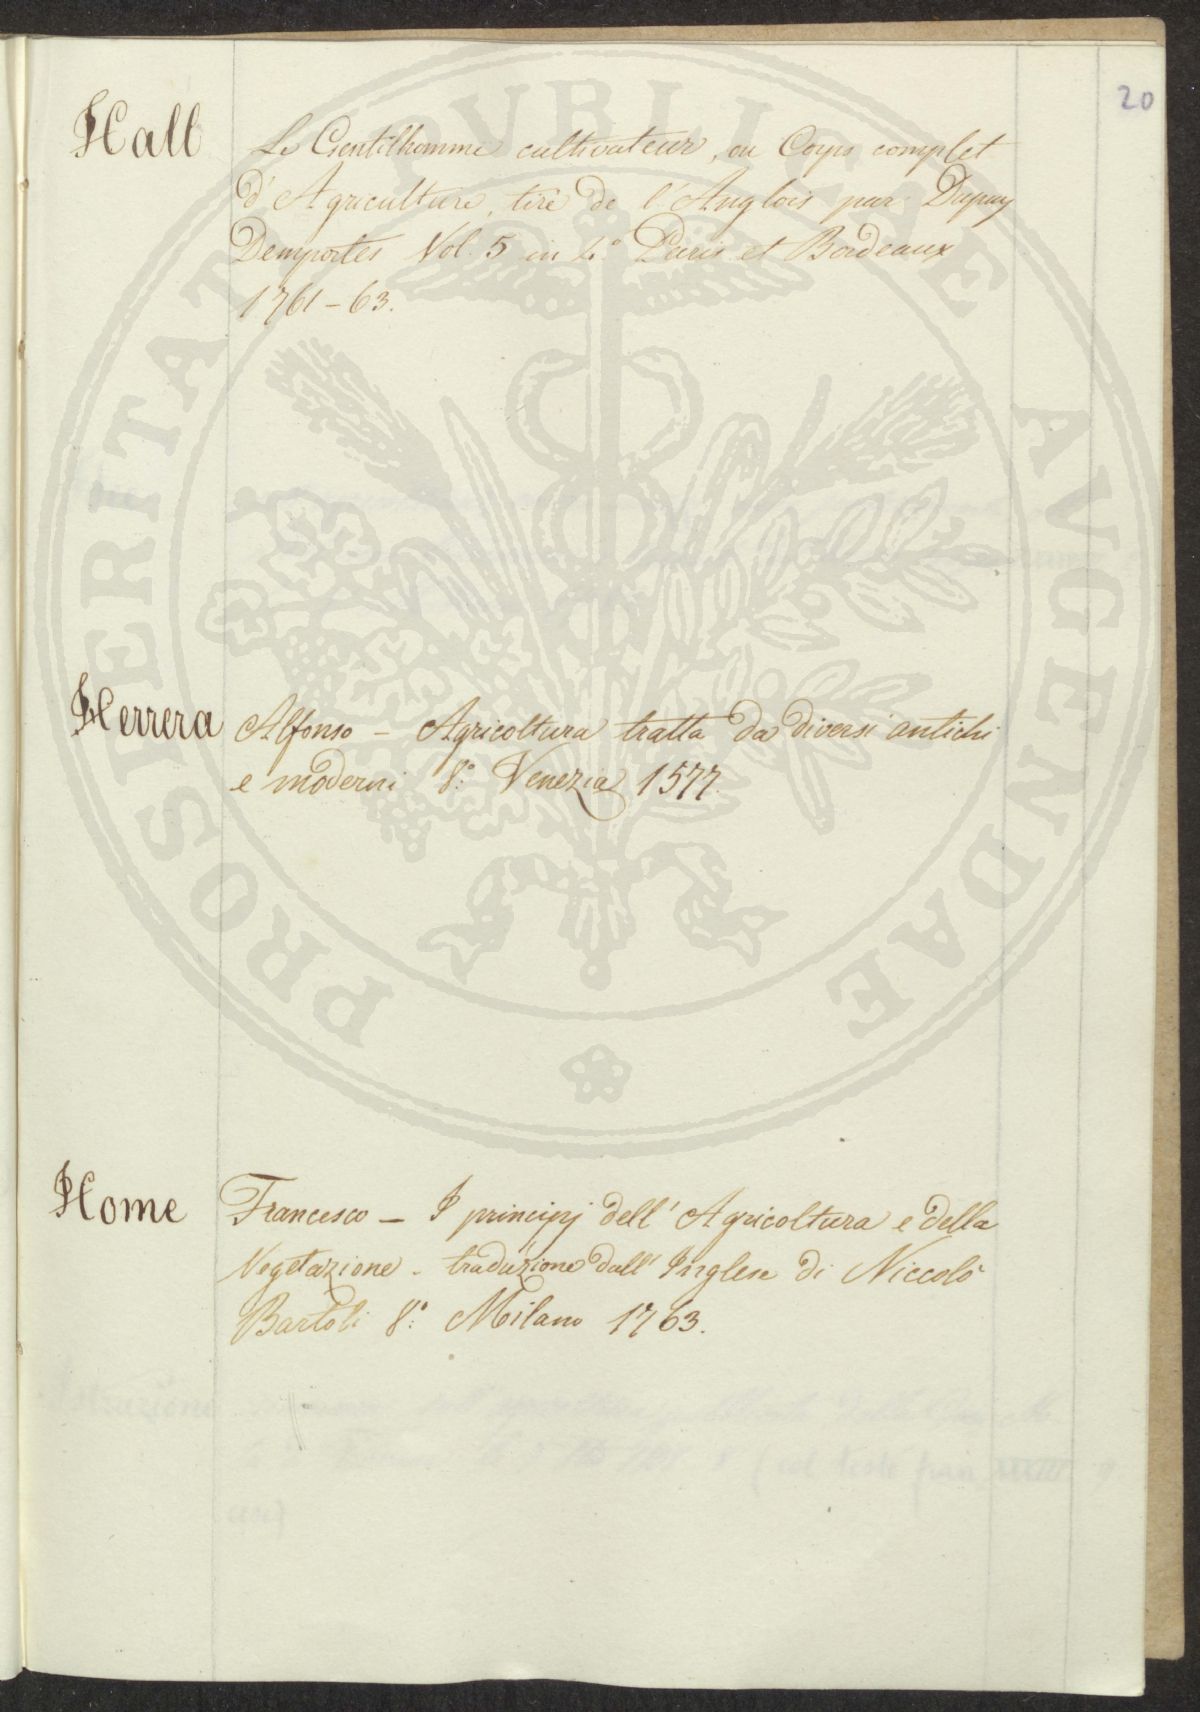 20
Hall
Le Gentilhomme cultivateur, ou Corps complet
d'Agriculture, tiré de l'Anglois par Dupuy
Demportes Vol. 5 in 4.° Paris et Bordeaux
1761-63.
Herrera Alfonso - Agricoltura tratta da diversi antichi
e moderni 8.° Venezia 1577.
Home Francesco - I principj dell'Agricoltura e della
Vegetazione - traduzione dall'Inglese di Niccolò
Bartoli 8.° Milano 1763.
PROSPERITATI PVBLICAE AVGENDAE